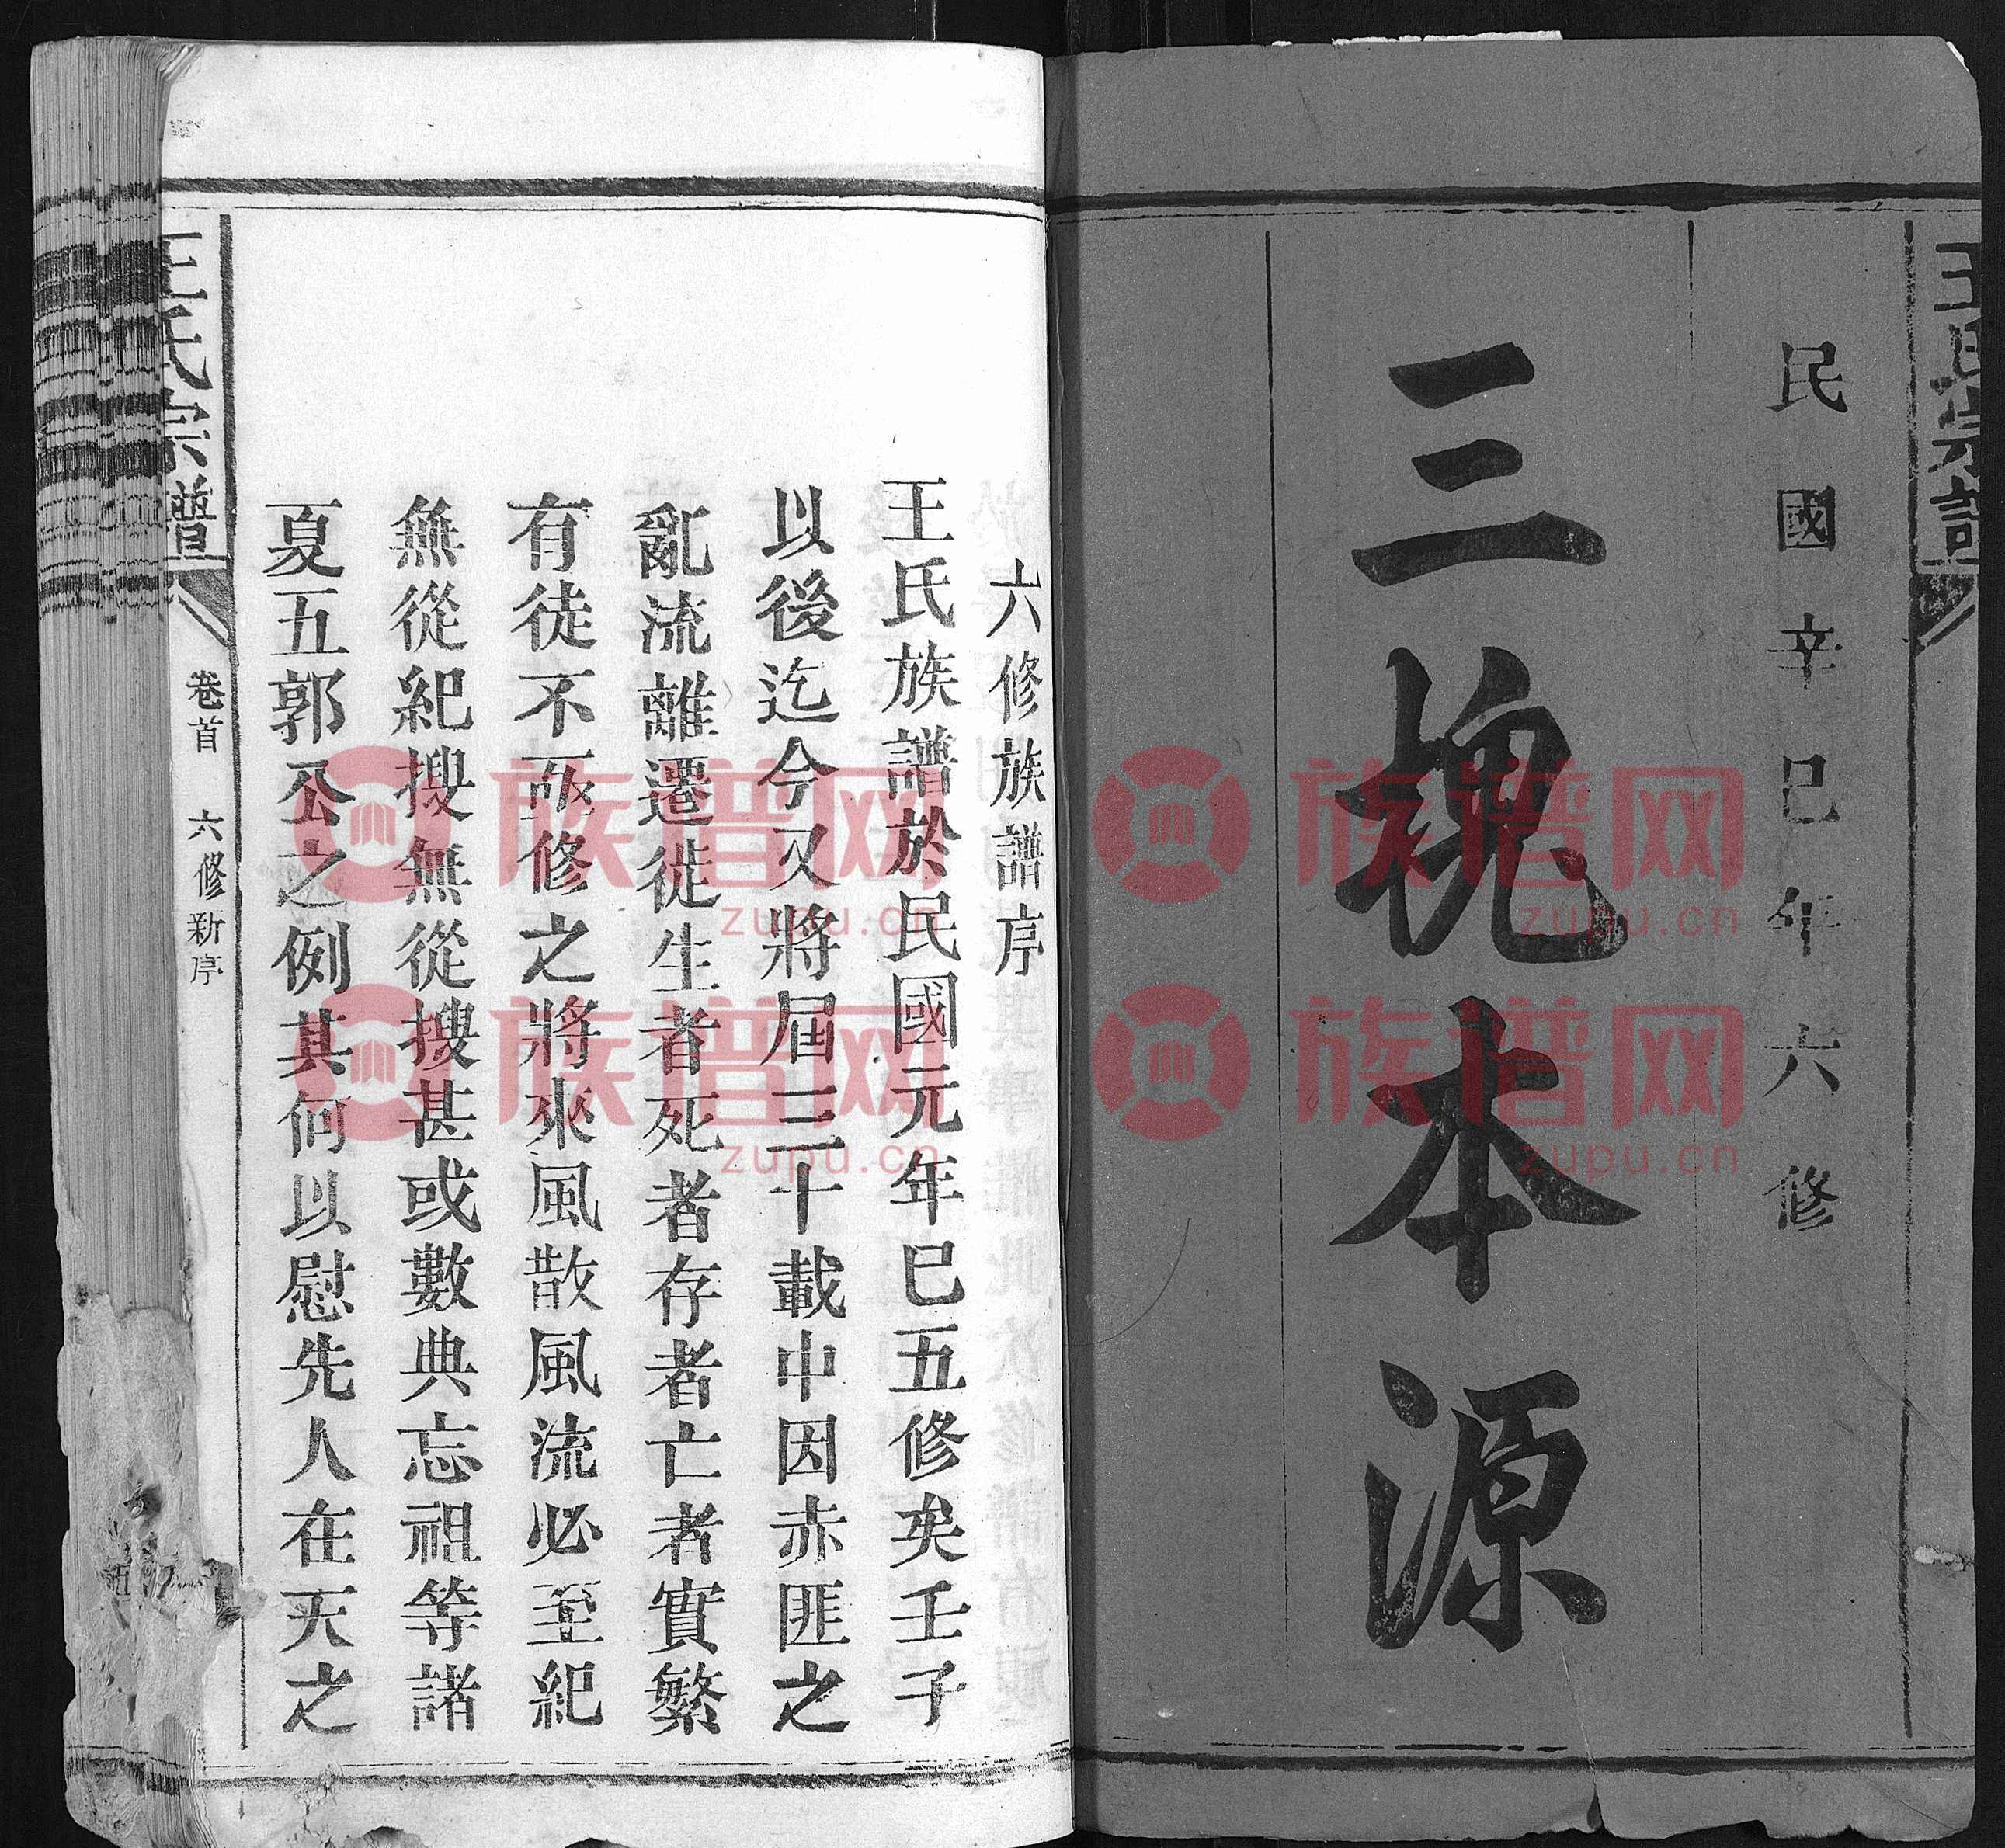 王氏宗譜
民國辛巳年六修
三槐本源
六修族譜序
王氏族譜於民國元年已五修矣壬子
以後迄今又將屆三十載中因赤匪之
亂流離遷徙生者死者存者亡者實繁
有徒不亟修之將來風散風流必至紀
無從紀搜無從搜甚或數典忘祖等諸
夏五郭公之例其何以慰先人在天之
王氏宗譜
卷首 六修新序
族谱网
zupu.cn
族谱网
zupu.cn
族谱网
zupu.cn
族谱网
zupu.cn